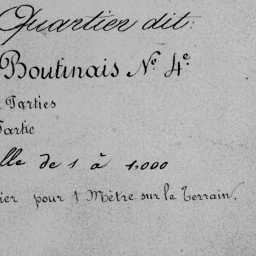 Quartier dit:
Boutinais N° 4e
Parties
Partie
lle de 1 à 1.000
ier pour 1 Mètre sur le Terrain.